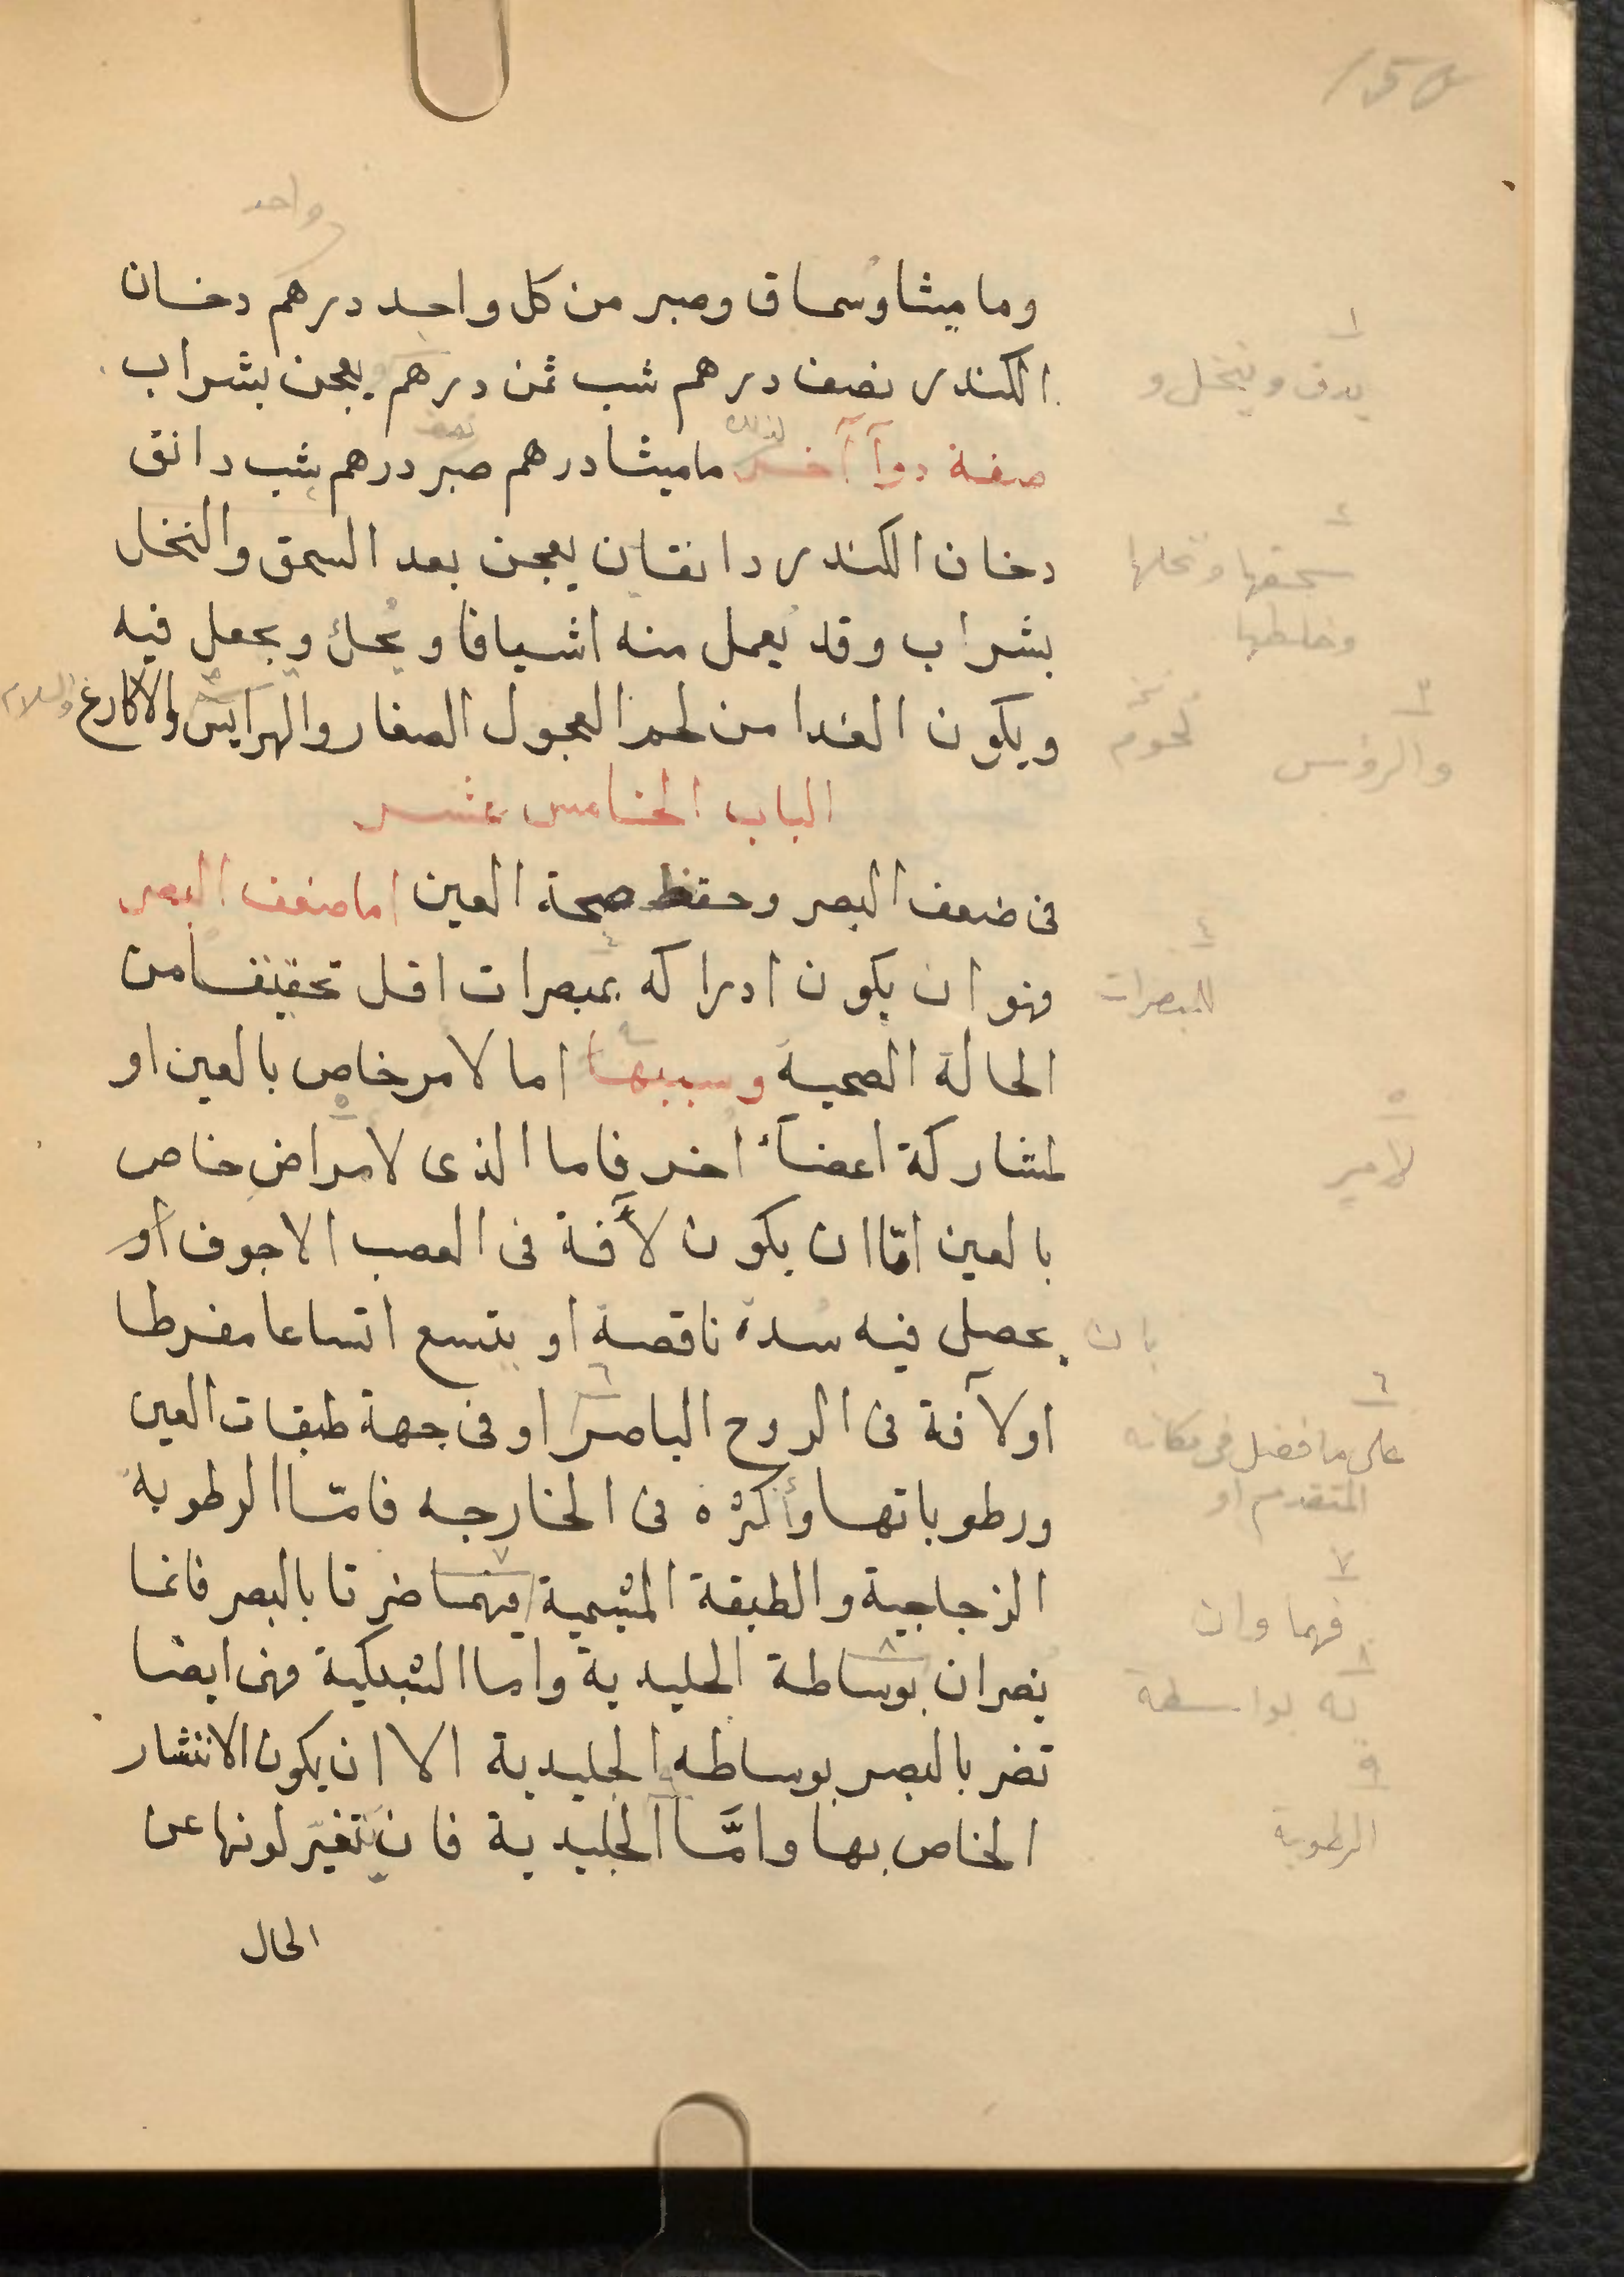 وماميثا وسماق وصبر من كل واحد درهم دخان
الكندر نصف درهم شب ثمن درهم يعجن بشراب
صفة دوآ آخر ماميثا درهم صبر درهم شب دانق
دخان الكندر دانقان يعجن بعد السحق والنخل
بشراب وقد يعمل منه اشيافا ويحك ويجعل فيه
ويكون الغدا من لحم العجول الصغار والهرايس والاكارع
الباب الخامس عشر
فى ضعف البصر وحفظ صحة العين اما ضعف البصر
فهو ان يكون ادراكه بمبصرات اقل تحقيقا من
الحالة الصحية وسببها اما لامر خاص بالعين او
لمشاركة اعضآء اخر فاما الذى لامراض خاص
بالعين امّا ان يكون لآفة فى العصب الاجوف أو
يحصل فيه سدة ناقصة او يتسع اتساعا مفرطا
او لآفة فى الروح الباصر او فى جهة طبقات العين
ورطوباتها وأكثره فى الخارجه فامّا الرطوبة
الزجاجية والطبقة المشيمية فهما ضرتا بالبصر فانما
يضران بوساطة الجليدية واما الشبكية فهى ايضا
تضر بالبصر بوساطه الجليدية الا ان يكون الانتشار
الخاص بها وامَّا الجليدية فان يتغيّر لونها عن
الحال
واحد
لذلك
نصف
١
يدق وينخل و
٢
سحقها ونخلها
وخلطها
٣
لحوم
والرؤس
والسلام
٤
للمبصرات
٥
لامر
بان
٦
على ما فصل فى مكانه
المتقدم او
٧
فهما وان
٨
به بواسطة
٩
الرطوبة